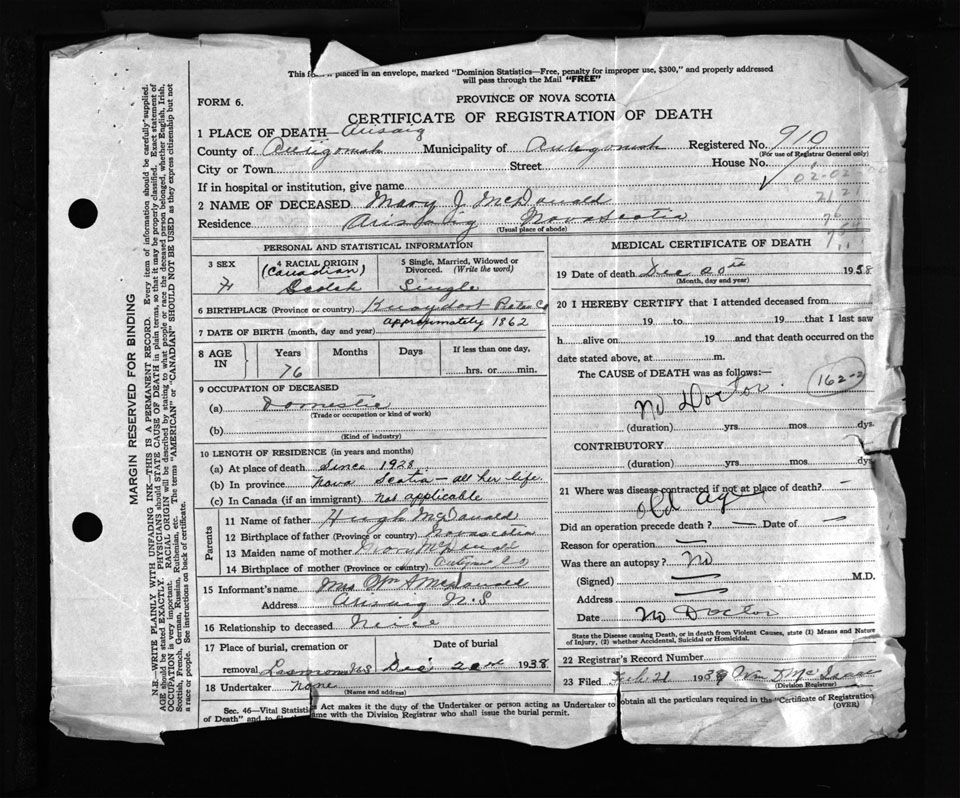 This f placed in an envelope, marked "Dominion Statistics—Free, penalty for improper use, $300," and properly addressed
will pass through the Mail "FREE"
FORM 6.
PROVINCE OF NOVA SCOTIA
CERTIFICATE OF REGISTRATION OF DEATH
1 PLACE OF DEATH— Arisaig
County of Antigonish Municipality of Antigonish Registered No. 910
(For use of Registrar General only)
City or Town Street House No.
02-02
If in hospital or institution, give name
2 NAME OF DECEASED Mary J. McDonald
Residence Arisaig Nova Scotia
(Usual place of abode)
PERSONAL AND STATISTICAL INFORMATION
3 SEX 4 RACIAL ORIGIN 5 Single, Married, Widowed or Divorced. (Write the word)
(Canadian)
F Single
6 BIRTHPLACE (Province or country)
7 DATE OF BIRTH (month, day and year) approximately 1862
8 AGE IN Years Months Days If less than one day,
76 hrs. or min.
9 OCCUPATION OF DECEASED
(a) Domestic
(Trade or occupation or kind of work)
(b)
(Kind of industry)
10 LENGTH OF RESIDENCE (in years and months)
(a) At place of death Since 1928.
(b) In province Nova Scotia - all her life
(c) In Canada (if an immigrant) Not applicable
Parents
11 Name of father Hugh McDonald
12 Birthplace of father (Province or country) Novascotia
13 Maiden name of mother
14 Birthplace of mother (Province or country)
15 Informant's name Mrs Wm S McDonald
Address Arisaig N.S
16 Relationship to deceased Neice
17 Place of burial, cremation or removal Date of burial
N.S Dec 1938
18 Undertaker None
(Name and address)
MEDICAL CERTIFICATE OF DEATH
19 Date of death Dec 20th 1938
(Month, day and year)
20 I HEREBY CERTIFY that I attended deceased from
19 to 19 that I last saw
h alive on 19 and that death occurred on the
date stated above, at m.
The CAUSE of DEATH was as follows:—
162-2
No Doctor
(duration) yrs. mos. dys.
CONTRIBUTORY
(duration) yrs. mos. dys.
21 Where was disease contracted if not at place of death? —
Old Age
Did an operation precede death? — Date of —
Reason for operation —
Was there an autopsy? No
(Signed) M.D.
Address
Date No Doctor
State the Disease causing Death, or in death from Violent Causes, state (1) Means and Nature
of Injury, (2) whether Accidental, Suicidal or Homicidal.
22 Registrar's Record Number
23 Filed Feb 21 1939 Wm D Mc Isaac
(Division Registrar)
Sec. 46—Vital Statistic Act makes it the duty of the Undertaker or person acting as Undertaker to obtain all the particulars required in the "Certificate of Registration
of Death" and to with the Division Registrar who shall issue the burial permit.
(OVER)
MARGIN RESERVED FOR BINDING
N.B.—WRITE PLAINLY WITH UNFADING INK—THIS IS A PERMANENT RECORD. Every item of information should be carefully supplied.
AGE should be stated EXACTLY. PHYSICIANS should STATE CAUSE OF DEATH in plain terms, so that it may be properly classified. Exact statement of
OCCUPATION is very important. RACIAL ORIGIN will be described by stating to what people or race the deceased person belonged, whether English, Irish,
Scottish, French, German, Russian, Ruthenian, etc. The terms "AMERICAN" or "CANADIAN" SHOULD NOT BE USED as they express citizenship but not
a race or people. See instructions on back of certificate.